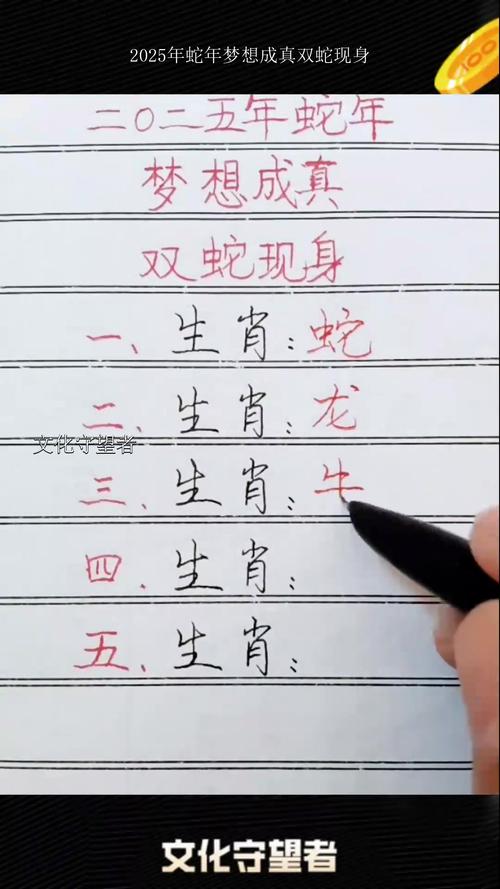 2025年蛇年梦想成真双蛇现身
二〇二五年蛇年
梦想成真
双蛇现身
一、生肖：蛇
二、生肖：龙
文化守望者
三、生肖：牛
四、生肖：
五、生肖：
文化守望者